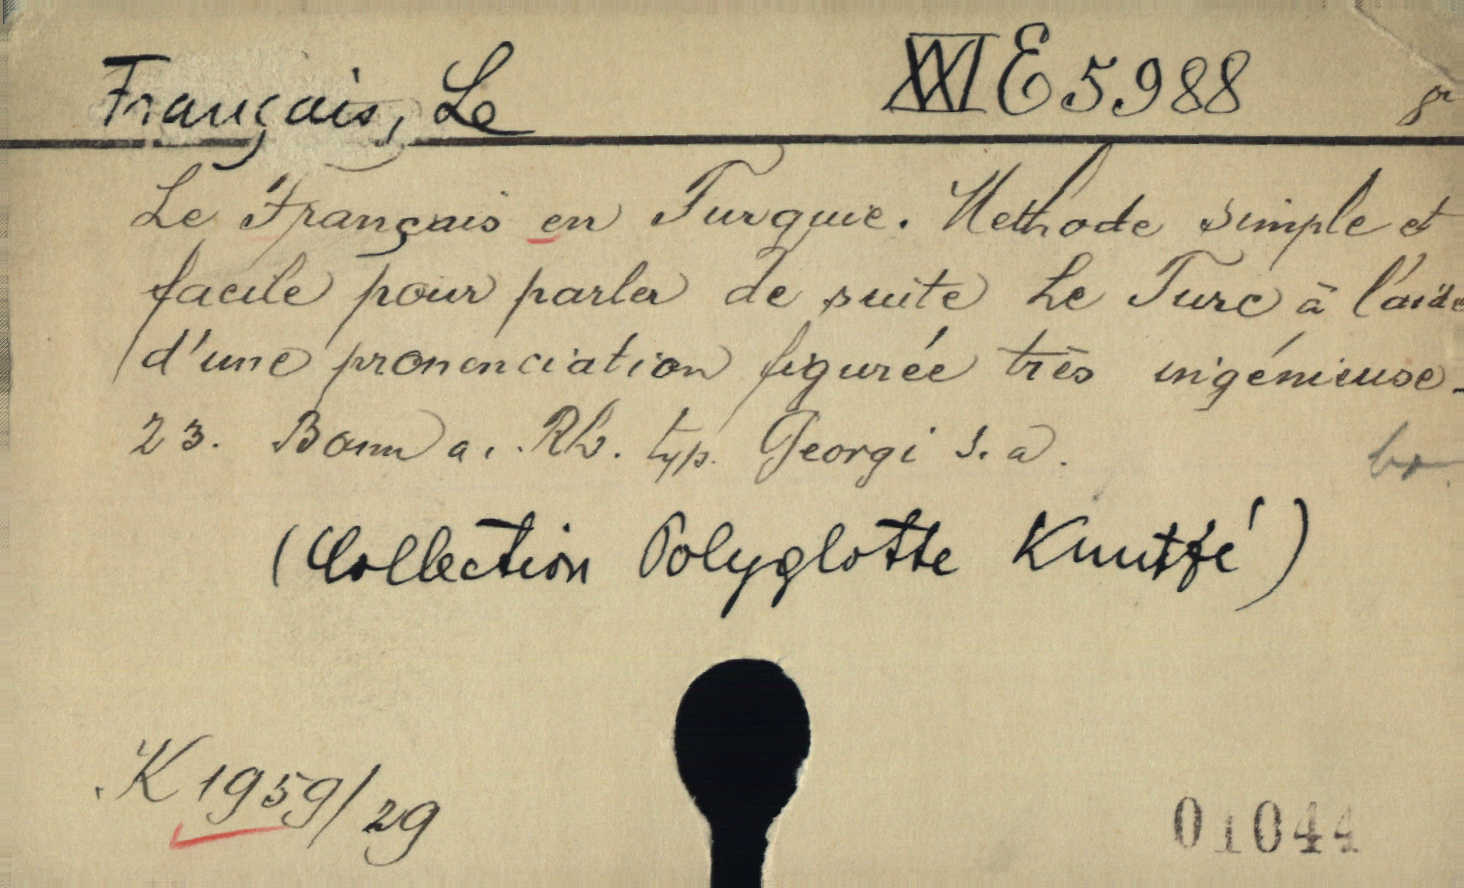 Français, Le XXI E 5988 8°
Le Français en Turquie. Methode simple et
facile pour parler de suite Le Turc à l'aide
d'une prononciation figurée très ingénieuse.
23. Bonn a. Rh. typ. Georgi s. a. br.
(Collection Polyglotte Kuntfé)
K 1959/29
01044